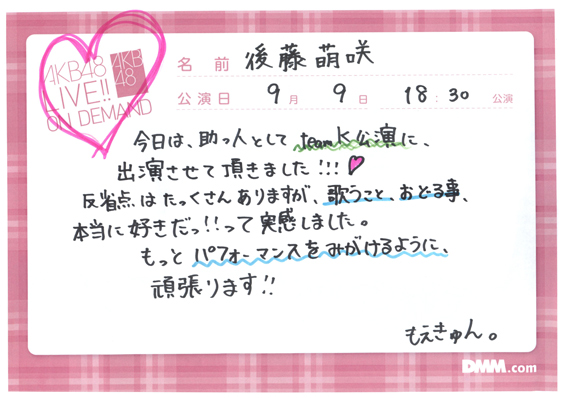 AKB48
LIVE!!
ON DEMAND
AKB
48
名前 後藤萌咲
公演日 9月 9日 18:30 公演
今日は、助っ人として teamK公演に、
出演させて頂きました!!!
反省点はたっくさんありますが、歌うこと、おどる事、
本当に好きだっ!!って実感しました。
もっとパフォーマンスをみがけるように、
頑張ります!!
もえきゅん。
DMM.com